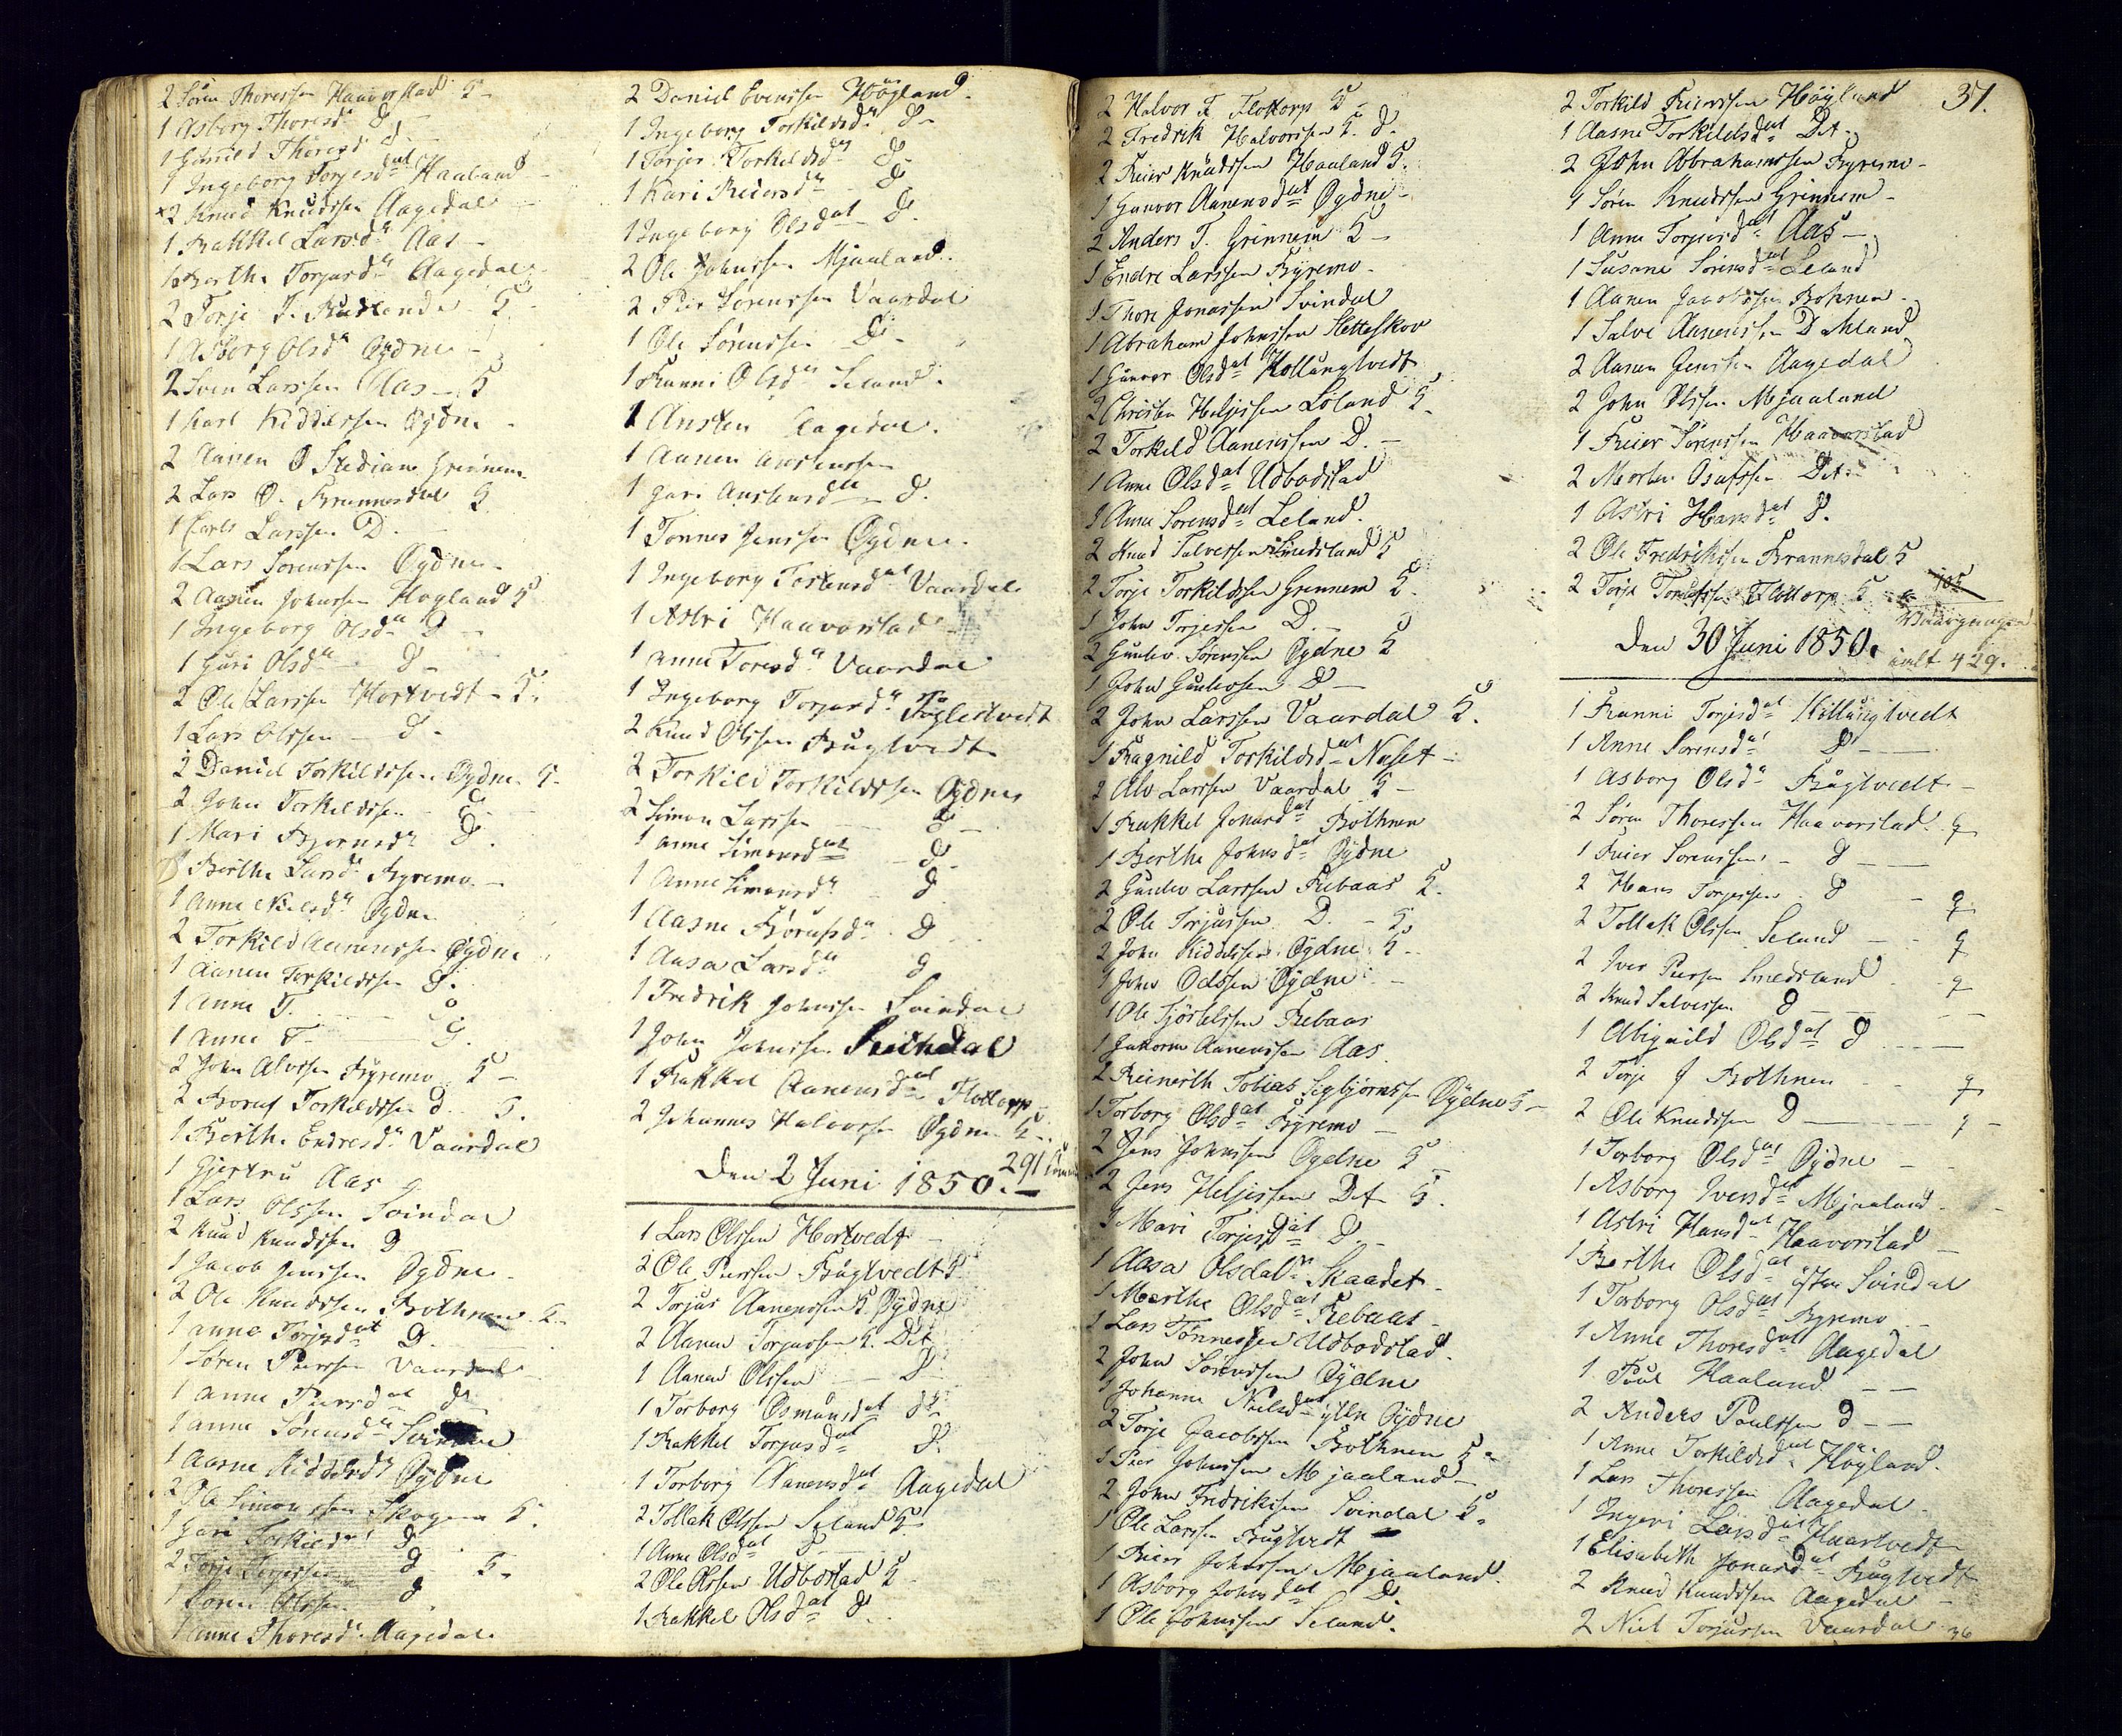 2 Sören Thoressen Haavorstad 5 -
1 Asborg Thoresd. D -
1 Gunild Thoresd D -
1 Ingeborg Torjesdat Haaland -
2 Knud Knudssen Aagedal -
1 Rakkel Larsd. Aas -
1 Berthe Torjusd. Aagedal -
2 Torje T. 5
1 Asborg Olsd. Øydne -
2 Sven Larssen Aas - 5
1 Kiddelssen Øydne -
2 Aanen O Grinnem
2 Lars O. Brannesdal 5
1 Larssen D.
1 Lars Sörenssen Øydne -
2 Aanen Johnssen Høgland 5
1 Ingeborg Olsd. D -
1 Guri Olsd. - D -
2 Ole Larssen Hortvedt - 5.
1 Lars Olssen - D -
2 Daniel Torkildssen Øydne 5 -
2 John Torkildssen - D. -
1 Mari Bjornsd. D.
1 Berthe Larsd. Byremo -
1 Anne Nielsd. Øydne
2 Torkild Aanenssen Øydne
1 Aanen Torkildssen D.
1 Anne T. - D.
1 Anne T - D.
2 John Alvssen Byremo 5 -
2 Torkildssen D. 5.
1 Berthe Endresd. Vaardal
1 Gjertru Aas
1 Lars Olssen Svindal
2 Knud Knudssen D
1 Jacob Jenssen Øydne -
2 Ole Knudssen Bothnen 5 -
1 Anne Torjesdat D. -
1 Sören Peerssen Vaardal
1 Anne Peersdat D -
1 Anne Sörensd.
1 Aasne Kiddelsd. Øydne
2 Ole Simonssen Skogen 5.
1 Guri Torkildsdat D
2 Torje Torjessen D 5 -
1 Sören Olssen D.
1 Anne Thoresd. Aagedal.
2 Daniel Evenssen Høgland.
1 Ingeborg Torkildsd. D -
1 Torjer Torkildsd. D -
1 Kari Reiersd. - D
1 Ingeborg Olsdat - D.
2 Ole Johnssen Mjaaland.
2 Peer Sörenssen Vaardal
1 Ole Sørenssen - D -
1 Ranni Olsd. Seland.
1 Ansten Aagedal.
1 Aanen Anstenssen
1 Guri Anstensdat - D.
1 Tönnes Jenssen Øydne.
1 Ingeborg Torkensdat Vaardal
1 Astri Haavorstad
1 Anne Toresd. Vaardal
1 Ingeborg Torjusd.
2 Knud Olssen Buglvedt
2 Torkild Torkildssen Øydne
2 Simon Larssen - D -
1 Anne Simonsdat - D -
1 Anne Simonsd. - D
1 Aasne D
1 Aasa Larsd. D
1 Fredrik Johnssen Svindal
1 John Johnssen
1 Rakkel Aanensdat Flottorp
2 Johannes Halvorsen Øydne 5 -
291
Den 2 Juni 1850. -
1 Lars Olssen Hortvedt -
2 Ole Peerssen Buglvedt 5
2 Torjus Aanenssen 5 Øydne
2 Aanen Torjussen 5. Dit
1 Aanen Olssen - D
1 Torborg Osmunsdat D
1 Rakkel Torjusdat D.
1 Torborg Aanensdat Aagedal
2 Tollak Olssen Seland 5
1 Anne Olsdat D -
2 Ole Olssen Udbostad 5
1 Rakkel Olsdat D.
37.
2 Halvor T. Flottorp 5 -
2 Fredrik Halvorssen 5. D.
2 Reier Knudssen Haaland 5.
1 Gunvor Aanensdat Øydne -
2 Anders T. Grinnem 5 -
1 Endre Larssen Byremo -
1 Thore Jonassen Svindal
1 Abraham Johnssen Sletteskov
1 Gunvor Olsdat Kollungtvedt
2 Christen Heljessen Løland 5.
2 Torkild Aanenssen D. -
1 Anne Olsdat Udbodstad
1 Anne Sørensdat Seland.
2 Knud Salvessen Smedsland 5
2 Torje Torkildssen Grinnem 5.
1 John Torjessen D. -
2 Gunlev Sörenssen Øydne 5
1 John Gunlevssen D -
2 John Larssen Vaardal 5.
1 Ragnild Torkildsdat Naset -
2 Alv Larssen Vaardal 5 -
1 Rakkel Jonasdat Bothnen
1 Berthe Johnsdat Øydne
2 Gunlev Larssen Rebaas 5.
2 Ole Torjussen D. - 5
2 John Kiddelssen Øydne 5 -
1 John Oddssen Øydne -
1 Ole Rebaas
1 Guttorm Aanenssen Aas
2 Reinerth Tobias Sigbjørnssen Øydne 5 -
1 Torborg Olsdat Byremo -
2 Jens Johnssen Øydne 5 -
2 Jens Heljessen Det 5.
1 Mari Torjesdat D. -
1 Aasa Olsdatr Skaadet -
1 Marthe Olsdat Rebaas -
1 Lars Tönnessen Udbodstad.
2 John Sörenssen Øydne
1 Johanne Nielsdat Øydne
2 Torje Jacobssen Bothnen 5 -
1 Peer Johnssen Mjaaland -
2 John Fredrikssen Svindal 5.
1 Ole Larssen Buglvedt
1 Reier Johnssen Mjaaland.
1 Asborg Johnsdat D.
1 Ole Johnssen Seland.
2 Torkild Reierssen Høyland
1 Aasne Torkildsdat Det -
2 John Abrahamssen Byremo -
1 Sören Knudssen Grinnem -
1 Anne Torjusdat Aas -
1 Susane Sörensdat Seland
1 Aanen Jacobssen Bothnen -
1 Salve Aanenssen
2 Aanen Jenssen Aagedal
2 John Olssen Mjaaland
1 Reier Sörenssen Haavorstad
2 Morten Det -
1 Astri Hansdat D.
2 Ole Fredrikssen Brannesdal 5
2 Torje Flottorp 5
105
Den 30 Juni 1850.
ialt 429.
1 Ranni Torjesdat Kollungtvedt
1 Anne Sörensdat D -
1 Asborg Olsd. Buglvedt -
2 Sören Thoressen Haavorstad 9
1 Reier Sörenssen - D -
2 Hans Torjessen D - 9
2 Tollak Olssen Seland - 9
2 Iver Peersen Smedsland - 9
2 Knud Salvessen D - -
1 Abigaild Olsdat D -
2 Torje J Bothnen - 9
2 Ole Knudssen D - 9 -
1 Torborg Olsdat Øydne -
1 Asborg Iversdat Mjaaland -
1 Astri Hansdat Haavorstad -
1 Berthe Olsdat Svindal
1 Torborg Olsdat Byremo -
1 Anne Thoresdat Aagedal
1 Poul Haaland -
2 Anders Poulssen D - -
1 Anne Torkildsdat Høyland.
1 Lars Thoressen Aagedal -
1 Ingeri Larsdat Haartvedt
1 Elisabeth Jonasdat Buglvedt
2 Knud Knudssen Aagedal -
2 Niel Torjussen Vaardal
36